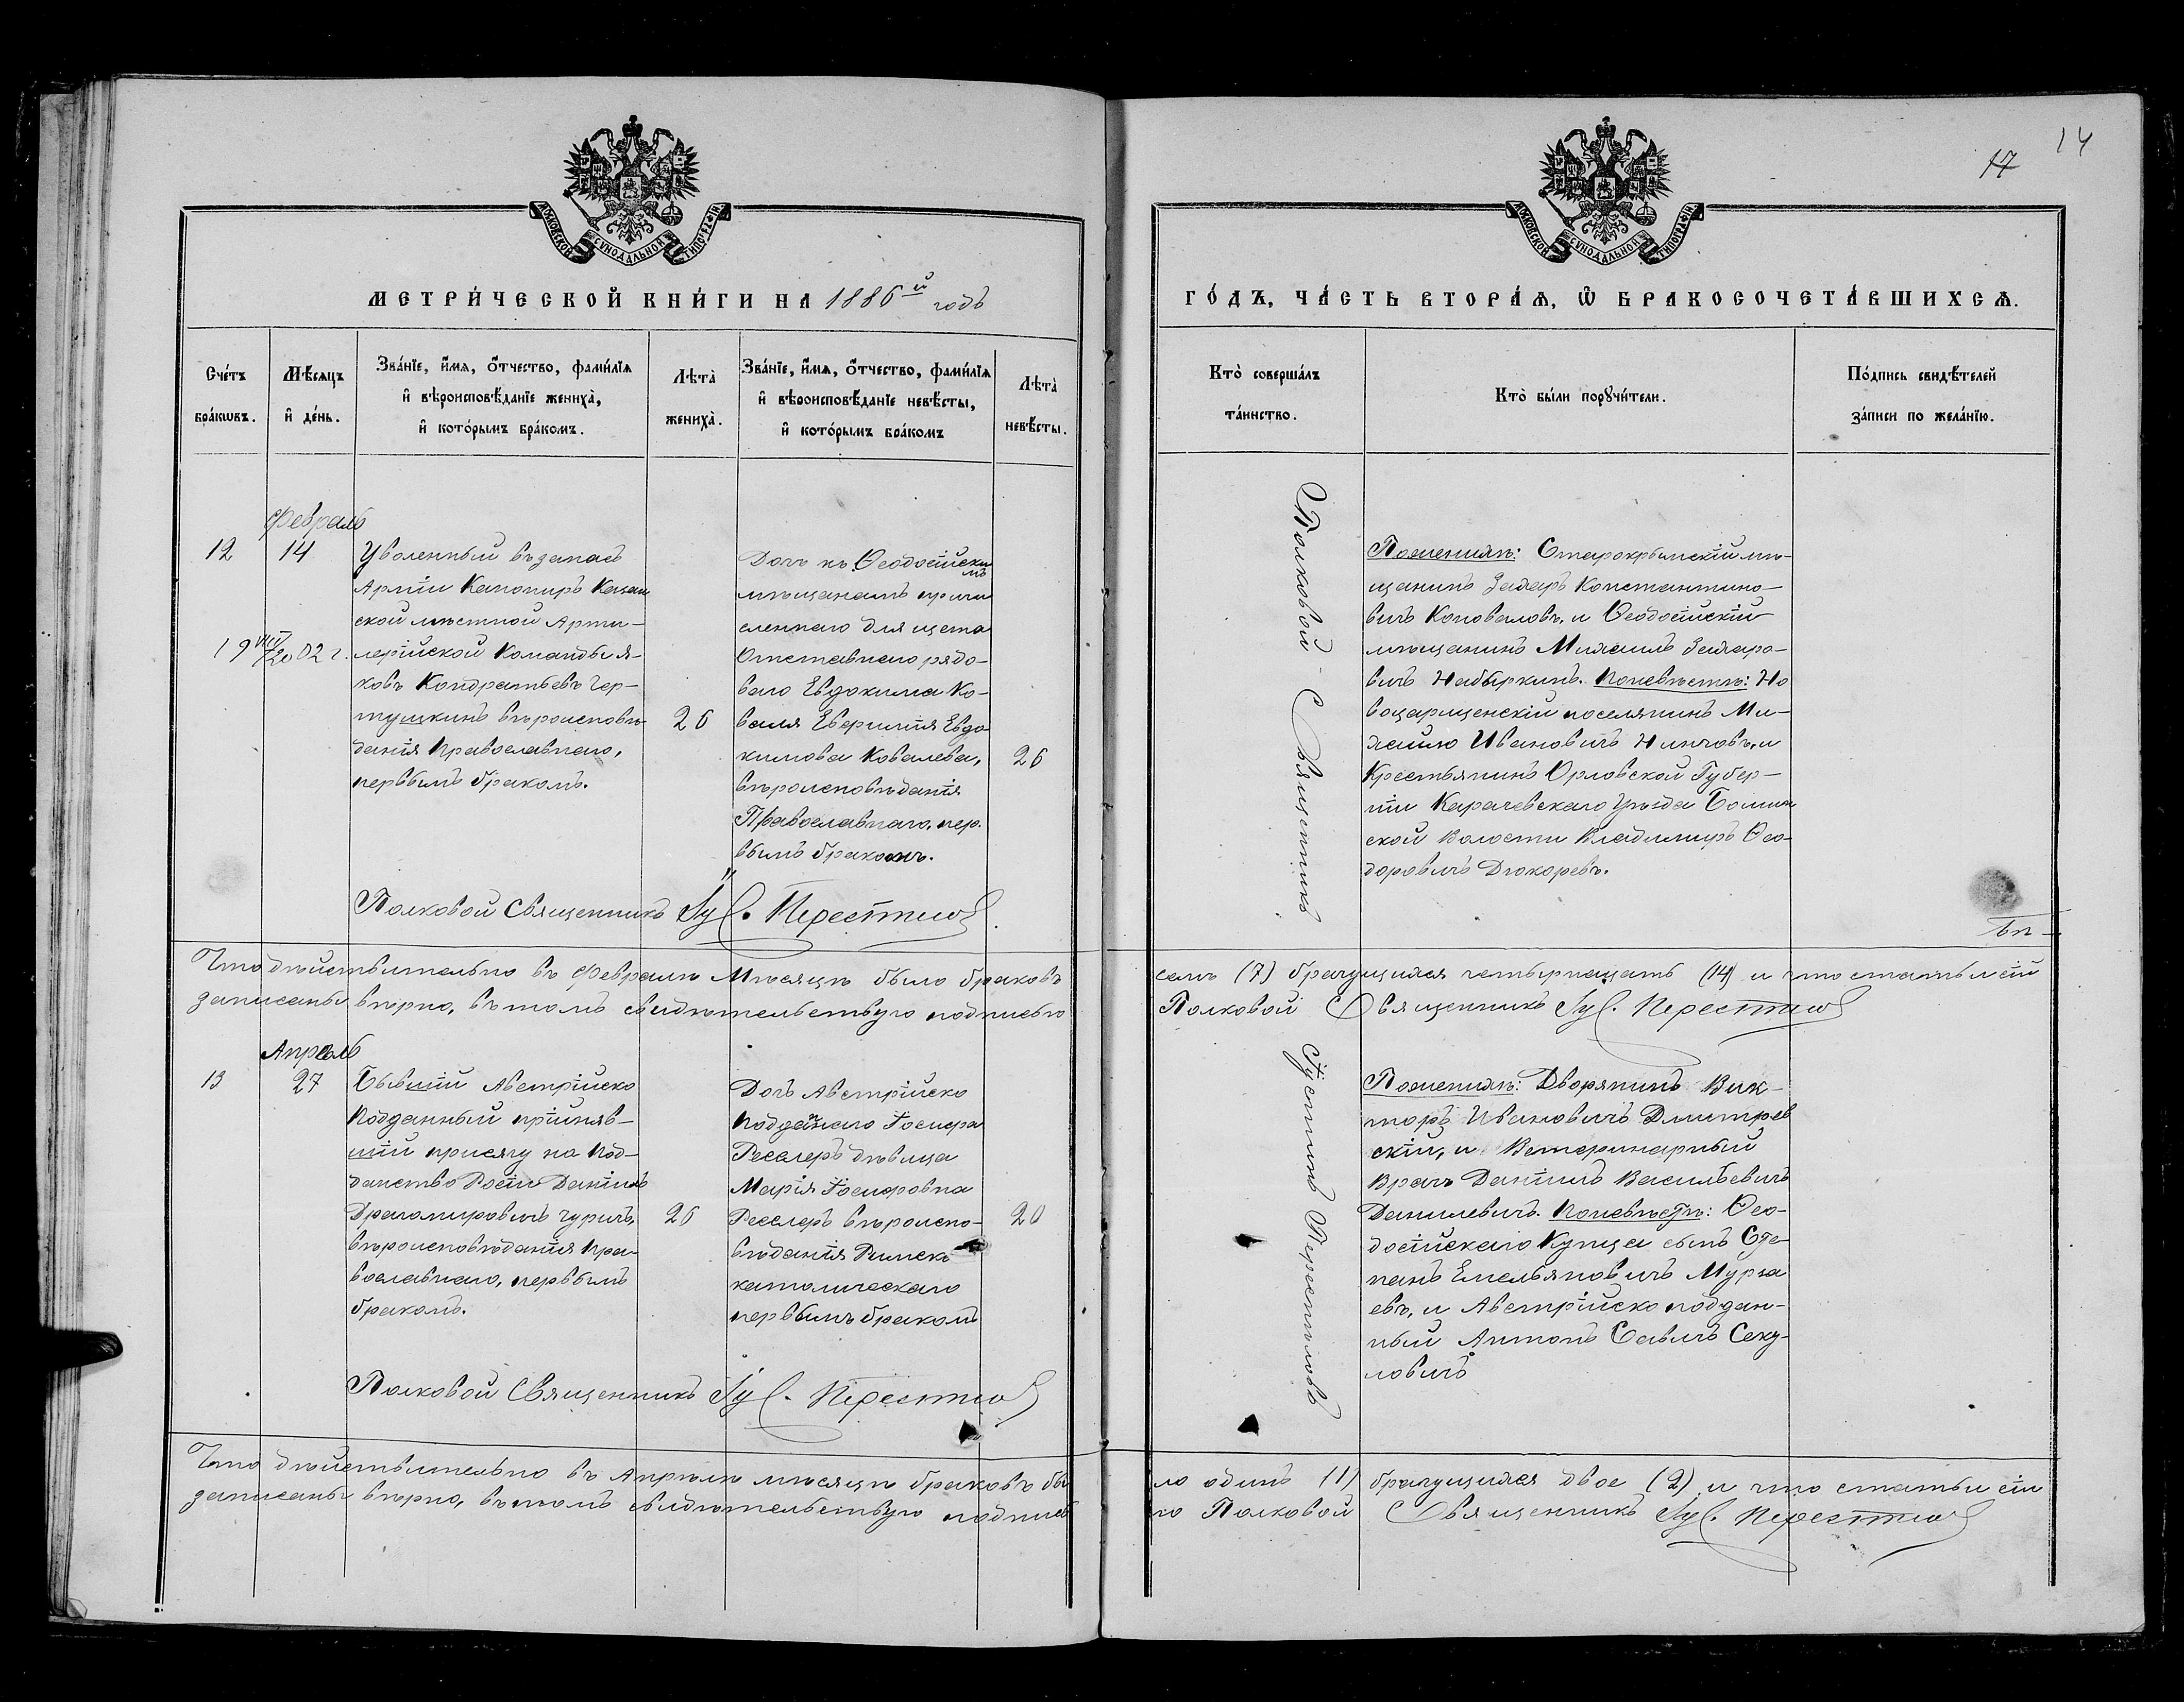 МОСКОВСКОЙ СѴНОДАЛЬНОЙ ТИПОГРАФІИ
МЕТРИ́ЧЕСКОЙ КНИ́ГИ НА 1886й годъ
Сче́тъ бра́кωвъ.
Мѣ́сяцъ и҆ де́нь.
Зва́нїе, и҆́мѧ, ѻ҆́тчество, фами́лїѧ
и҆ вѣроисповѣ́данїе жениха̀,
и҆ кото́рымъ бра́комъ.
Лѣта̀ жениха̀.
Зва́нїе, и҆́мѧ, ѻ҆́тчество, фами́лїѧ
и҆ вѣроисповѣ́данїе невѣ́сты,
и҆ кото́рымъ бра́комъ
Лѣта̀ невѣ́сты.
Февраль
12
14
19 VIII/20 02 г.
Уволенный въ запасъ
Арміи Канониръ Казан
ской мѣстной Арти-
лерійской Команды Я-
ковъ Кондратьевъ Чер-
тушкинъ вѣроисповѣ-
данія Православнаго,
первымъ бракомъ.
26
Дочь къ Ѳеодосійскимъ
мѣщанамъ причи
сленнаго для щета
Отставнаго рядо-
ваго Евдокима Ко-
валя Евфимія Евдо
кимова Ковалева,
вѣроисповѣданія
Православнаго, пер.
вымъ бракомъ.
26
Полковой Священникъ Іус. Перестіловъ
Что дѣйствительно въ Февралѣ Мѣсяцѣ было браковъ
записаны вѣрно, въ томъ свидѣтельствую подписью
Апрѣль
13
27
Бывшій Австрійско
Подданный прійняв-
шій присягу на под-
данство Росіи Даніилъ
Драгомировичъ Чуричъ,
вѣроисповѣданія пра-
вославнаго, первымъ
бракомъ.
26
Дочь Австрійско
подданнаго Іосифа
Ресслеръ дѣвица
Марія Іосифовна
Ресслеръ вѣроиспо-
вѣданія Римско
католическаго
первымъ бракомъ
20
Полковой Священникъ Іус. Перестіловъ
Что дѣйствительно въ Апрѣлѣ мѣсяцѣ браковъ бы
записаны вѣрно, въ томъ свидѣтельствую подпись
МОСКОВСКОЙ СѴНОДАЛЬНОЙ ТИПОГРАФІИ
17
14
ГО́ДЪ, ЧА́СТЬ ВТОРА́Ѧ, Ѽ БРАКОСОЧЕТА́ВШИХСѦ.
Кто̀ соверша́лъ та́инство.
Кто̀ бы́ли порꙋчи́тели.
По́дпись свидѣ́телей за́писи по жела́нїю.
Полковой Священникъ
Поженихѣ: Старокрымскій мѣ-
щанинъ Захаръ Константино-
вичъ Коновалов, и Ѳеодосійскій
мѣщанинъ Михаилъ Захаро-
вичъ Набыркинъ. Поневѣстѣ: Но
воцарищенскій поселянинъ Ми-
хаило Ивановичъ Нинховъ, и
Крестьянинъ Орловской Губер-
ніи Карачевскаго Уѣзда
ской Волости Владимиръ Ѳео-
доровичъ Дюкоревъ.
семь (7) брачущихся четырнацать (14) и что статьи сіи
Полковой Священникъ Іус. Перестіловъ
Іустинъ Перестіловъ
Поженихѣ: Дворянинъ Вик-
торъ Ивановичъ Дмитрев
скій, и Ветеринарный
Врачъ Даніилъ Васильевичъ
Данилевичъ. Поневѣстѣ: Ѳео-
досійскаго Купца сынъ Сте-
панъ Емельяновичъ Мурза
евъ, и Австрійско поддан-
ный Антонъ Савичъ Секу-
ловичъ
ло одинъ (1) брачущихся двое (2) и что статьи сіи
ю Полковой Священникъ Іус. Перестіловъ